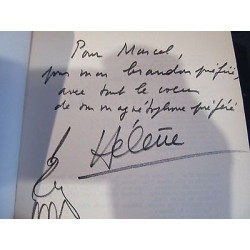 Pour Marcel,
pour mon brandon préféré,
avec tout le coeur
de son magnétophone préféré
Hélène